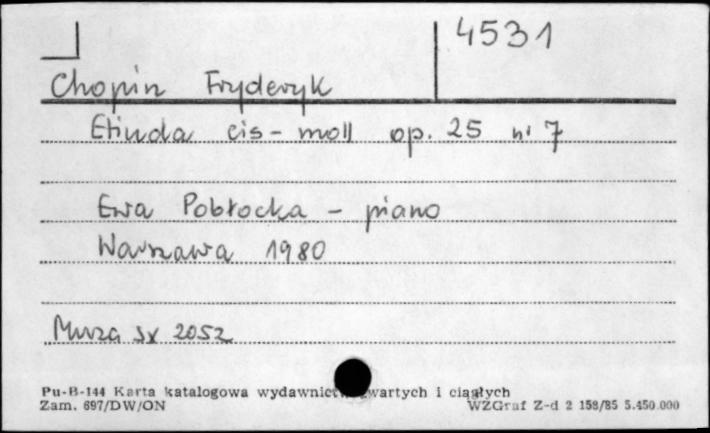 4531
Chopin Fryderyk
Etiuda cis-moll op. 25 nr 7
Ewa Pobłocka - piano
Warszawa 1980
Muza SX 2052
Pu-B-144 Karta katalogowa wydawnictw zwartych i ciągłych
Zam. 697/DW/ON WZGraf Z-d 2 158/85 5.450.000